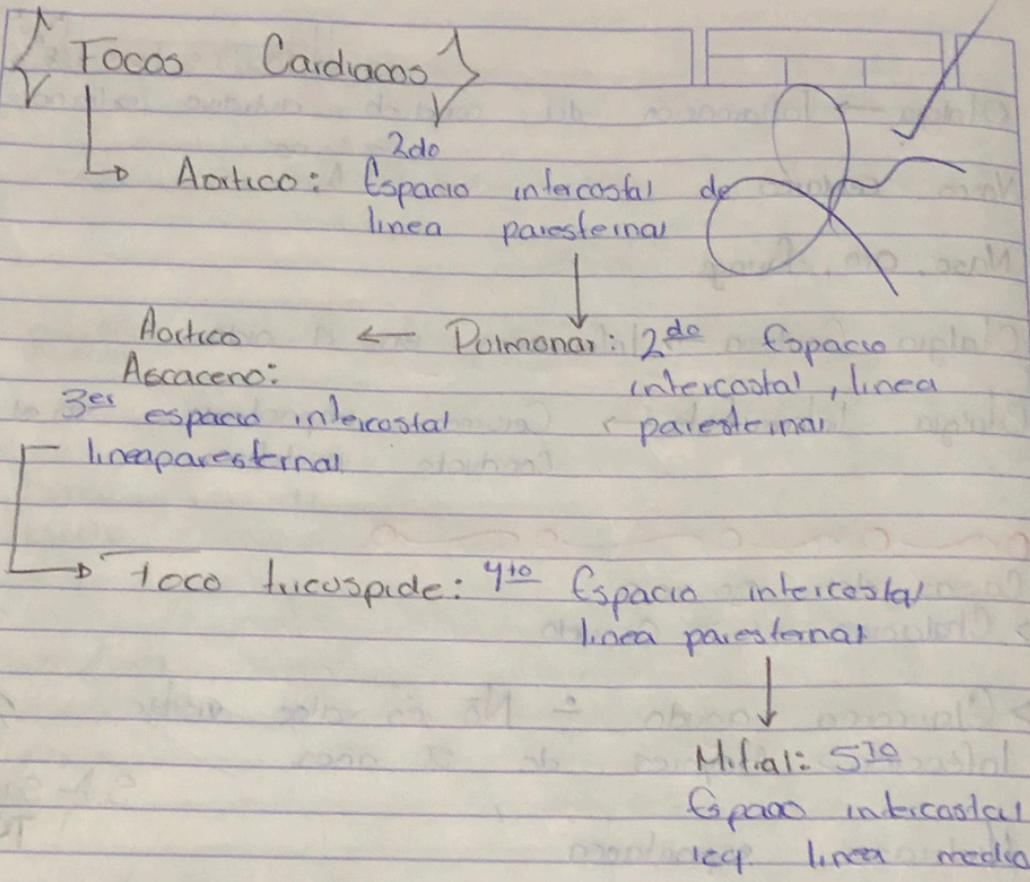 Focos Cardiacos
Aortico: 2do Espacio intercostal de
linea paresternal
Pulmonar: 2do Espacio
intercostal, linea
paresternal
Aortico
Ascaceno:
3er espacio intercostal
linea paresternal
Foco tricuspide: 4to Espacio intercostal
linea paresternal
Mitral: 5to
Espacio intercostal
izq. linea media